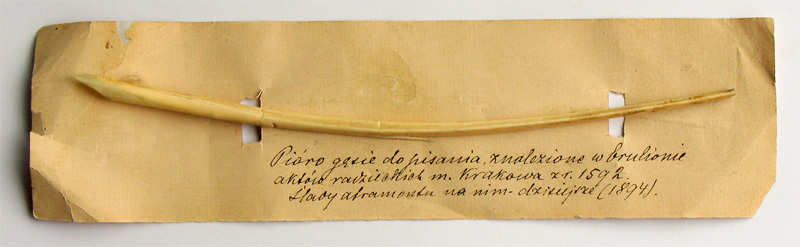 Pióro gęsie do pisania, znalezione w brulionie
aktów radzieckich m. Krakowa z r. 1592.
Ślady atramentu na nim - dzisiejsze (1894).